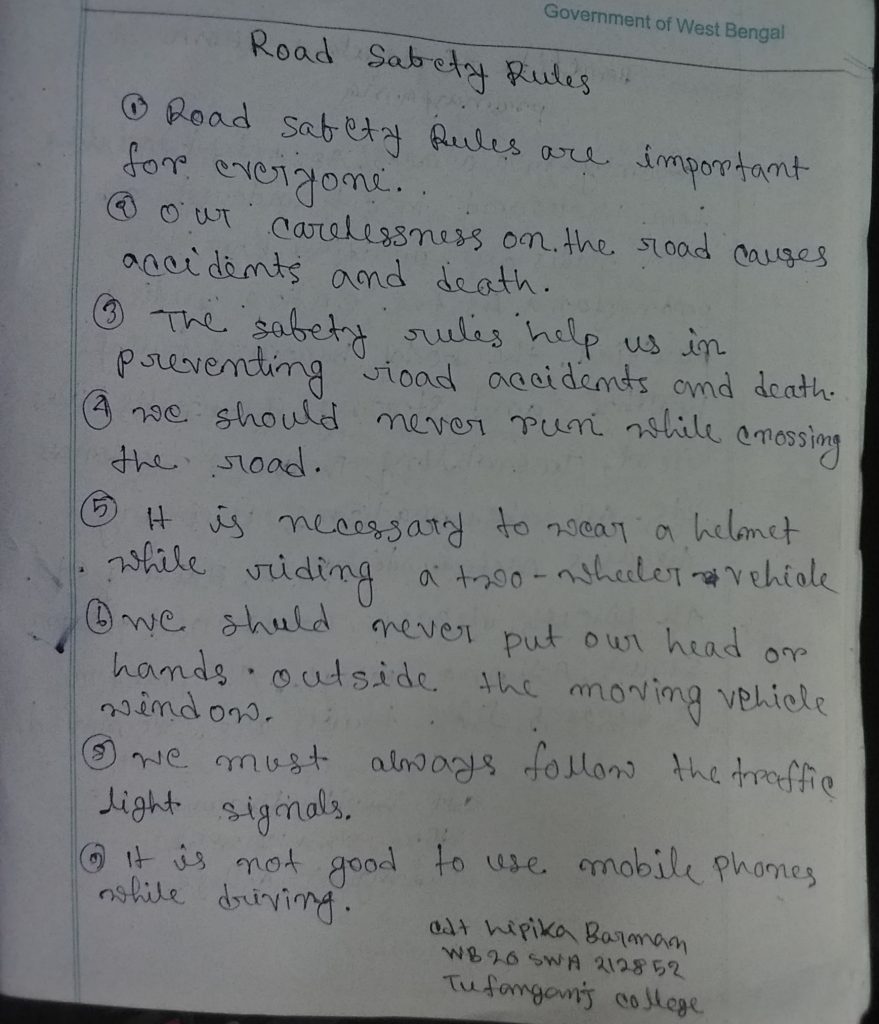 Government of West Bengal
Road Safety Rules
① Road safety Rules are important
for everyone.
② Our carelessness on the road causes
accidents and death.
③ The safety rules help us in
preventing road accidents and death.
④ we should never run while crossing
the road.
⑤ It is necessary to wear a helmet
while riding a two-wheeler vehicle
⑥ we shuld never put our head or
hands outside the moving vehicle
window.
⑧ we must always follow the traffic
light signals.
⑨ It is not good to use mobile phones
while driving.
cdt Lipika Barman
WB 20 SWA 212852
Tufanganj college